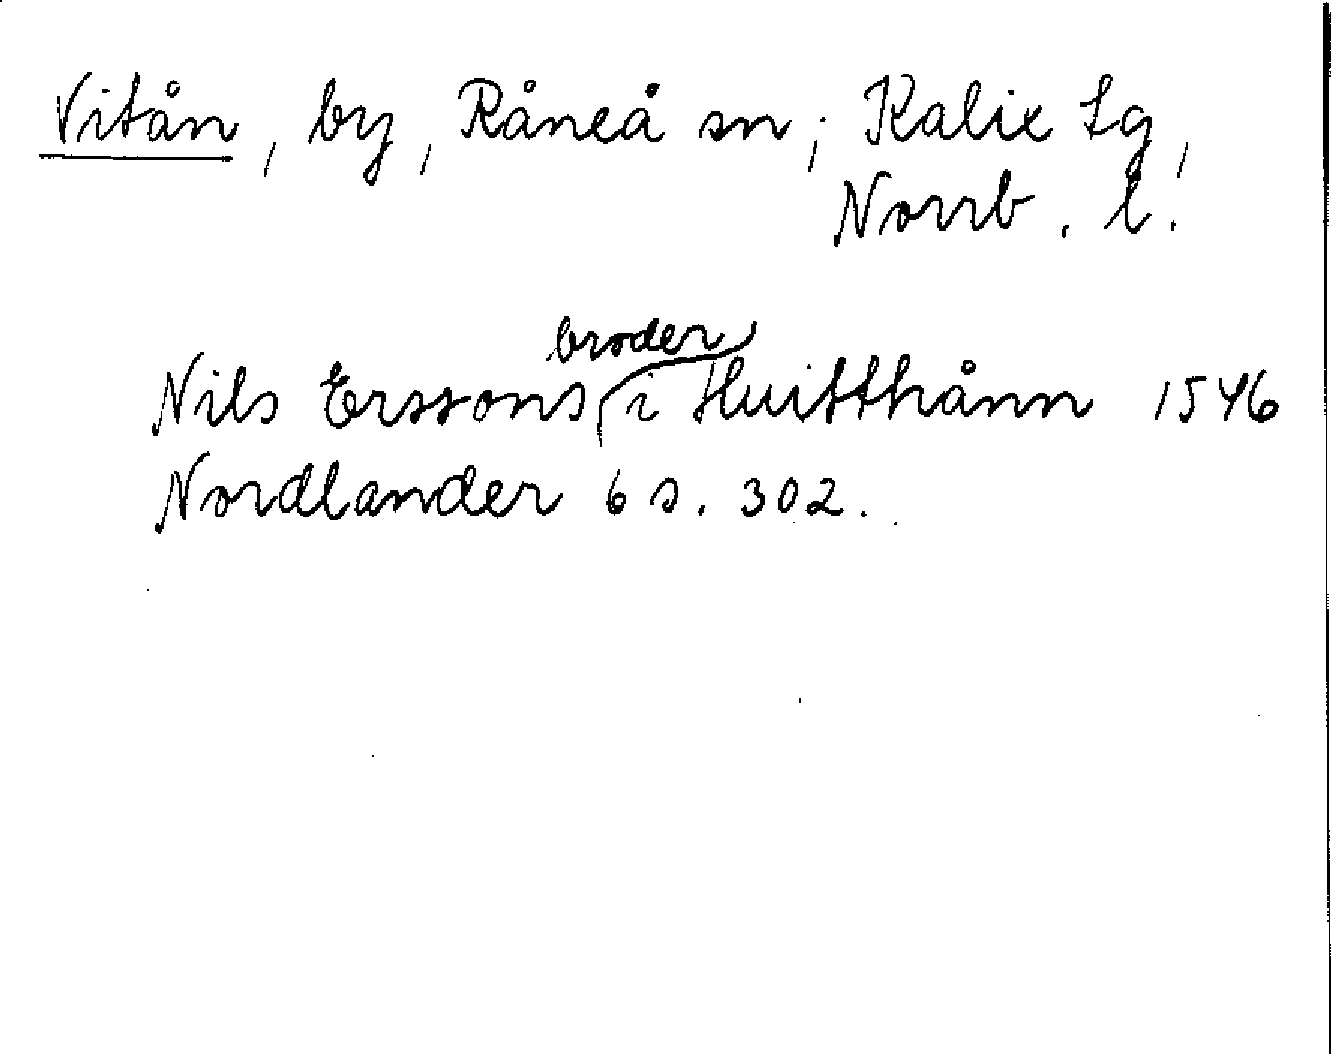 Vitån, by, Råneå sn; Kalix tg,
Norrb. l.
Nils Erssons broder i Huitthånn 1546
Nordlander 6 s. 302.